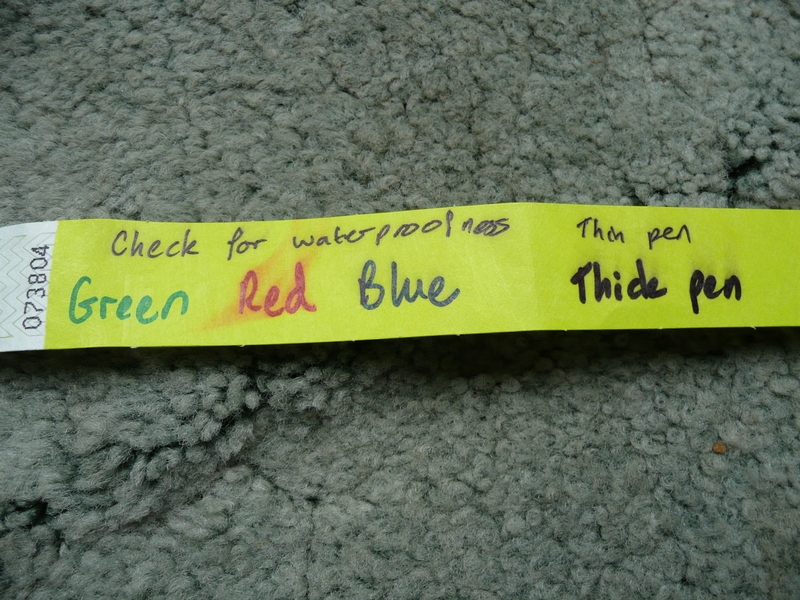 073804
Check for waterproofness
Green Red Blue
Thin pen
Thick pen